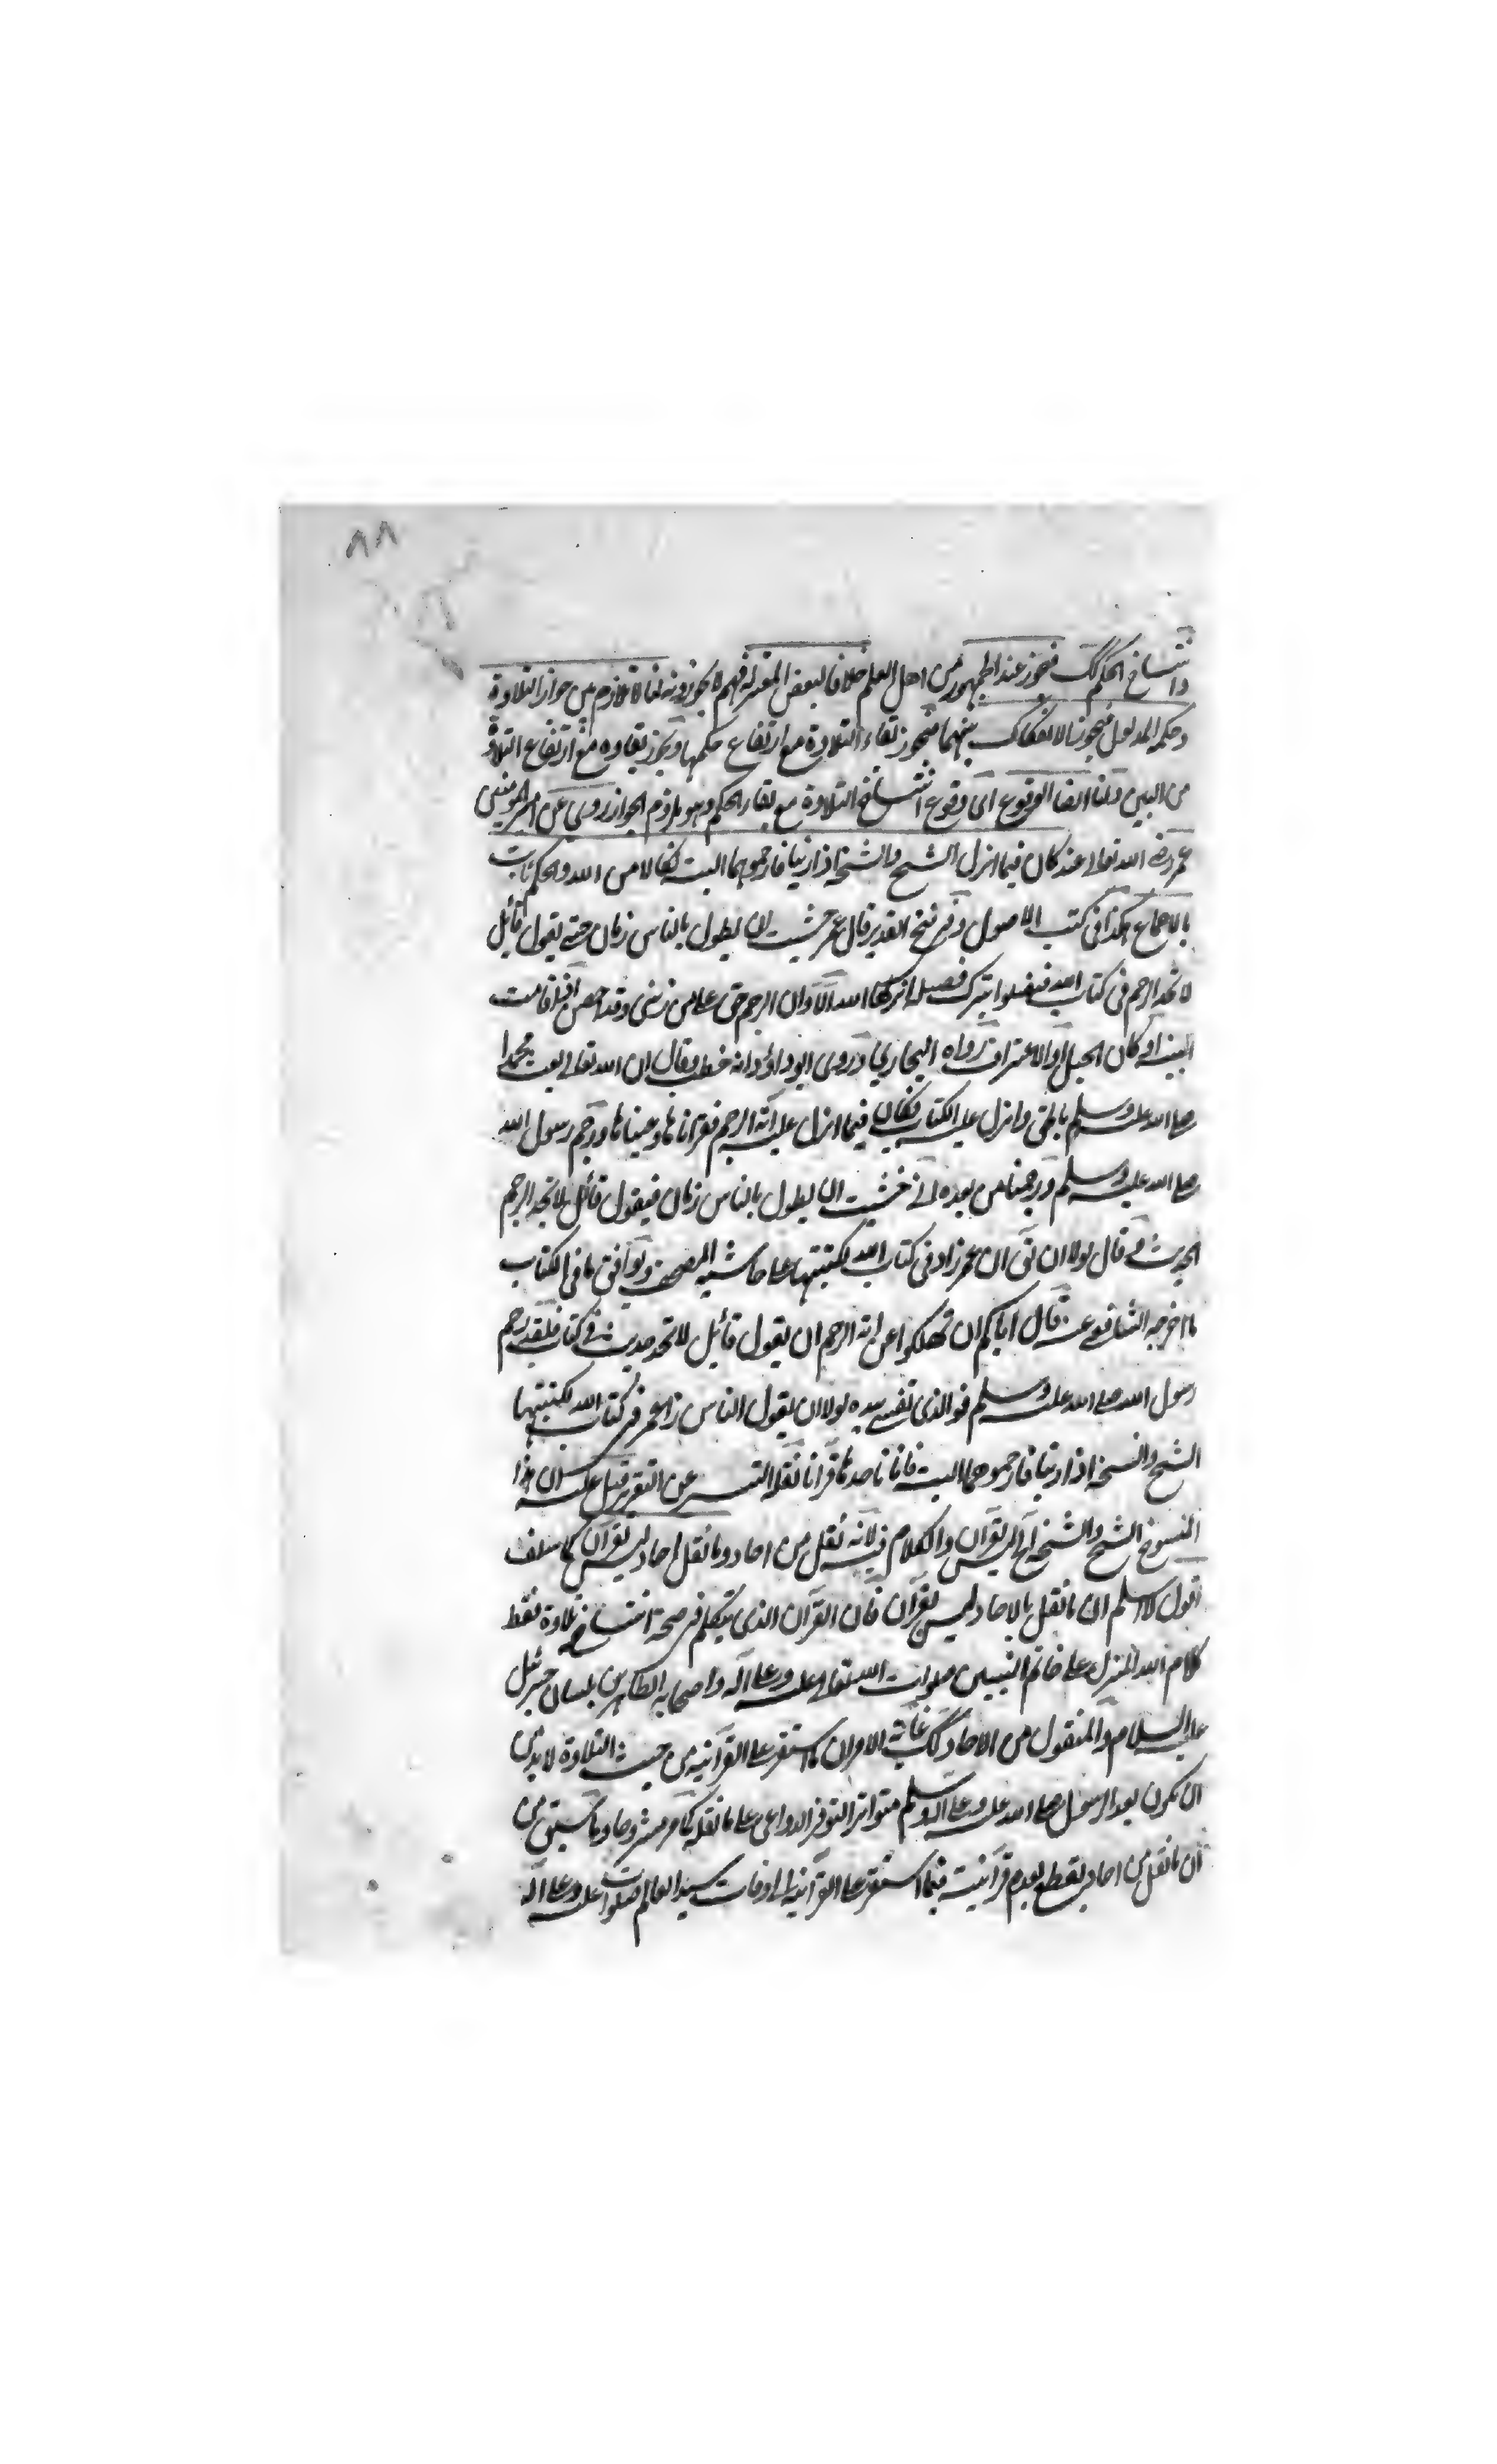 ٨٨
وانتساخ الحكم كك فيجوز عند الجمهور من اهل العلم خلافا لبعض المعتزلة فهم لا يجوزونه لنا لا تلازم بين جواز التلاوة
وحكم المدلول فيجوز الانفكاك بينهما فيجوز بقاء التلاوة مع ارتفاع حكمها ويجوز بقاوه مع ارتفاع التلاوة
من البين ولنا ايضا الوقوع اى وقوع انتساخ التلاوة مع بقاء الحكم وهو ملزوم الجواز روى عن امير المومنين
عمر رضى الله تعالى عنه كان فيما انزل الشيخ والشيخة اذا زنيا فارجموهما البتة نكالا من الله والحكم ثابت
بالاجماع هكذا فى كتب الاصول وفى فتح القدير قال عمر خشيت ان يطول بالناس زمان حتى يقول قائل
لا نجد الرجم فى كتاب الله فيضلوا بترك فريضة انزلها الله الا وان الرجم حق على من زنى وقد احصن اذا قامت
البينة او كان الحبل او الاعتراف رواه البخارى وروى ابو داؤد انه خطب وقال ان الله تعالى بعث محمدا
صلى الله عليه وسلم بالحق وانزل عليه الكتاب فكان فيما انزل عليه اية الرجم فقراناها ووعيناها ورجم رسول الله
صلى الله عليه وسلم ورجمنا من بعده انى خشيت ان يطول بالناس زمان فيقول قائل لا نجد الرجم
الحديث قال لولا ان يقال ان عمر زاد فى كتاب الله لكتبتها على حاشية المصحف وتوافق ما فى الكتاب
ما اخرجه الشافعى عنه قال اياكم ان تهلكوا عن اية الرجم ان يقول قائل لا نجد حدين فى كتاب الله فلقد رجم
رسول الله صلى الله عليه وسلم فوالذى نفسى بيده لولا ان يقول الناس زاد عمر فى كتاب الله لكتبتها
الشيخ والشيخة اذا زنيا فارجموهما البتة فانا قد قراناها نقله التيسير عن التقرير قيل عليه ان هذا
المنسوخ الشيخ والشيخة آه ليس بقران والكلام فيه لانه نقل من احاد وما نقل احادا ليس بقران كما سلف
اقول لا اسلم ان ما نقل بالاحاد ليس بقران فان القرآن الذى يتكلم فى صحة انتساخ تلاوة فقط
كلام الله المنزل على خاتم النبيين صلوات الله تعالى عليه وعلى اله واصحابه الطاهرين بلسان جبرئيل
عليه السلام والمنقول من الاحاد كك غاية الامر ان ما استقر على القرآنية من حيث التلاوة لا بد من
ان يكون بعد الرسول صلى الله عليه وعلى اله وسلم متواترا لتوفر الدواعى على ما نقله كما مر مشروحا وما سبق من
ان ما نقل من احاد يقطع بعدم قرآنيته فيما استقر على القرآنية الى وفات سيد العالم صلوات عليه وعلى اله